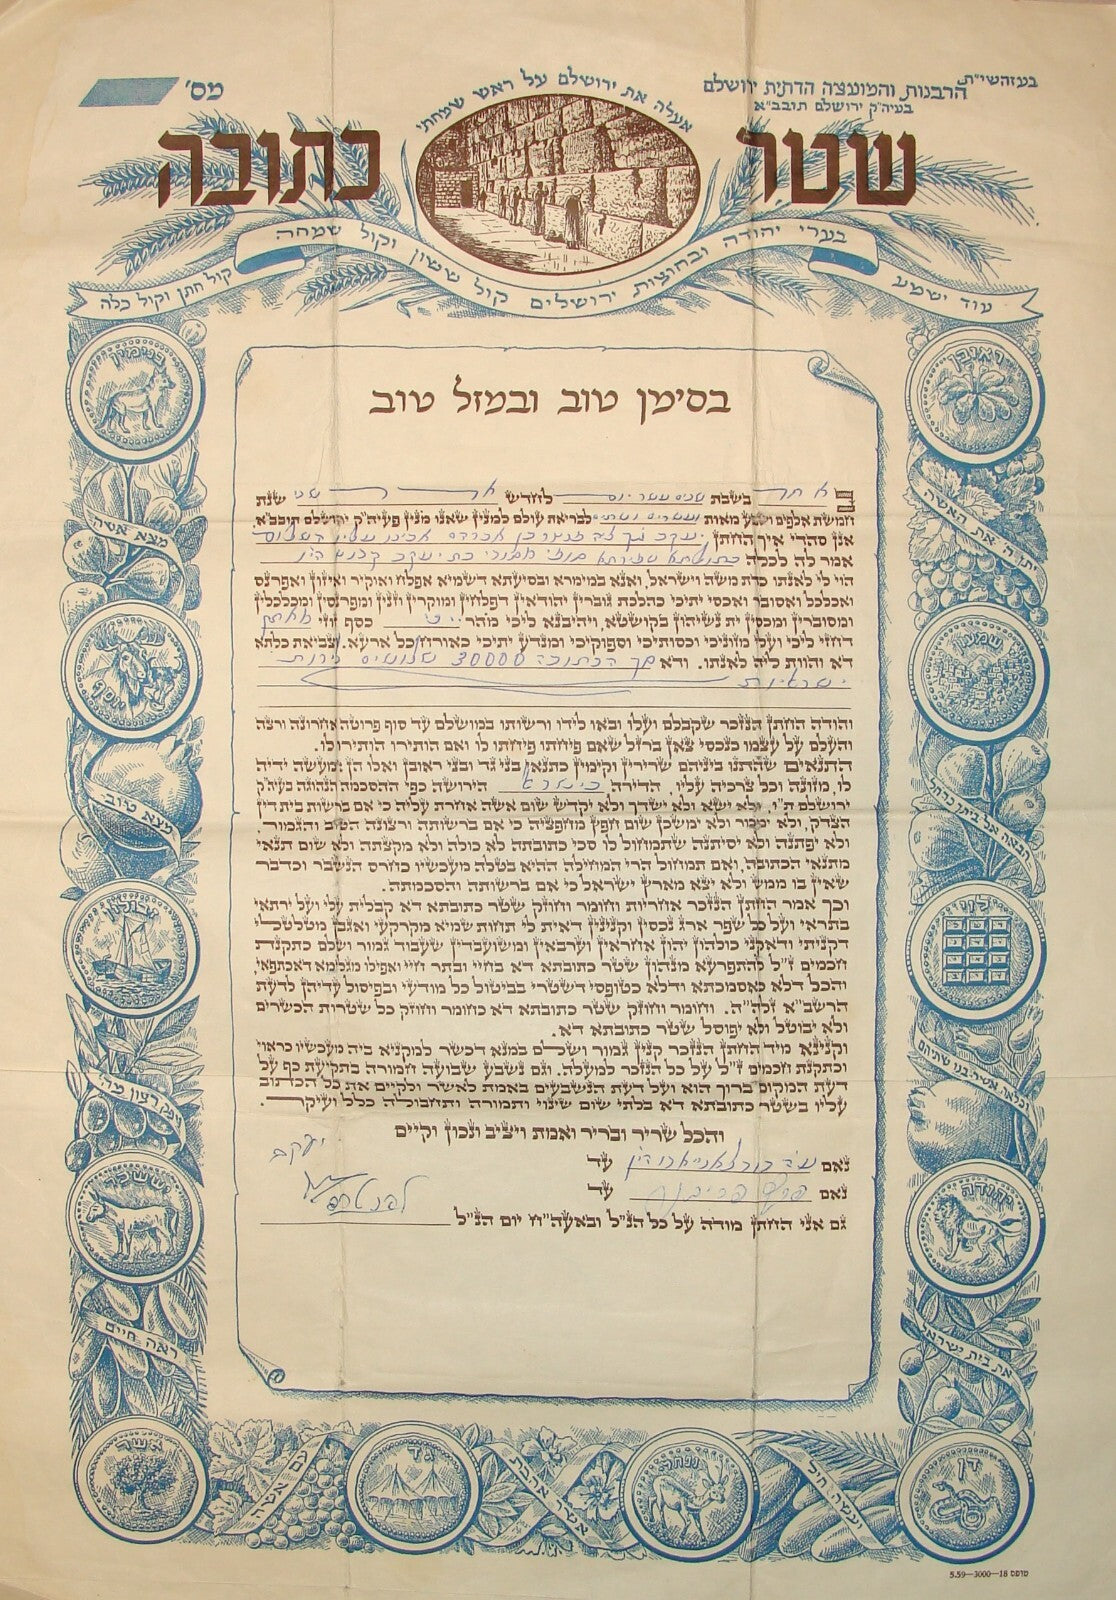 בעזהשי"ת
הרבנות והמועצה הדתית ירושלם
בעיה"ק ירושלם תובב"א
מס'
אעלה את ירושלם על ראש שמחתי
שטר כתובה
עוד ישמע
בערי יהודה ובחוצות ירושלים קול ששון וקול שמחה
קול חתן וקול כלה
בסימן טוב ובמזל טוב
בשבת שנים עשר יום לחדש שנת
חמשת אלפים ושבע מאות ועשרים ושתים לבריאת עולם למנין שאנו מנין פעיה"ק ירושלם תובב"א
אנן סהדי איך החתן יעקב בן אברהם אבינו עליו השלום
אמר לה לכלה בת יעקב
הוי לי לאנתו כדת משה וישראל, ואנא במימרא ובסיעתא דשמיא אפלח ואוקיר ואיזון ואפרנס
ואכלכל ואסובר ואכסי יתיכי כהלכת גוברין יהודאין דפלחין ומוקרין וזנין ומפרנסין ומכלכלין
ומסוברין ומכסין ית נשיהון בקושטא, ויהיבנא ליכי מהר כסף זוזי מאתן
דחזי ליכי ועלי מזוניכי וכסותיכי וספוקיכי ומנדע יתיכי כאורח כל ארעא, וצביאת כלתא
דא והוות ליה לאנתו. ודא סך הכתובה 30000 שלושים לירות
ישראליות
והודה החתן הנזכר שקבלם ועלו ובאו לידו ורשותו במושלם עד סוף פרוטה אחרונה ורצה
והעלם על עצמו כנכסי צאן ברזל שאם פיחתו פיחתו לו ואם הותירו הותירו לו.
התנאים שהתנו ביניהם שרירין וקימין כתנאי בני גד ובני ראובן ואלו הן מעשה ידיה
לו, מזונה וכל צרכיה עליו, הדירה הירושה כפי ההסכמה הנהוגה בעיה"ק
ירושלם ת"ו, ולא ישא ולא ישדך ולא יקדש שום אשה אחרת עליה כי אם ברשות בית דין
הצדק, ולא ימכור ולא ימשכן שום חפץ מחפציה כי אם ברשותה ורצונה הטוב והגמור,
ולא יפתנה ולא יסיתנה שתמחול לו סכי כתובתה לא כולה ולא מקצתה ולא שום תנאי
מתנאי הכתובה, ואם תמחול הרי המחילה ההיא בטלה מעכשיו כחרס הנשבר וכדבר
שאין בו ממש ולא יצא מארץ ישראל כי אם ברשותה והסכמתה.
וכך אמר החתן הנזכר אחריות וחומר וחוזק שטר כתובתא דא קבלית עלי ועל ירתאי
בתראי ועל כל שפר ארג נכסין וקנינין דאית לי תחות שמיא מקרקעי ואגבן מטלטלי
דקניתי ודאקני כולהון יהון אחראין וערבאין ומשועבדין שעבוד גמור ושלם כתקנת
חכמים ז"ל להתפרעא מנהון שטר כתובתא דא בחיי ובתר חיי ואפילו מגלימא דאכתפאי,
והכל דלא כאסמכתא ודלא כטופסי דשטרי בביטול כל מודעי ובפיסול עדיהן לדעת
הרשב"א זלה"ה. וחומר וחוזק שטר כתובתא דא כחומר וחוזק כל שטרות הכשרים
ולא יבוטל ולא יפוסל שטר כתובתא דא.
וקנינא מיד החתן הנזכר קנין גמור ושלם במנא דכשר למקניא ביה מעכשיו כראוי
וכתקנת חכמים ז"ל על כל הנזכר למעלה. וגם נשבע שבועה חמורה בתקיעת כף על
דעת המקום ברוך הוא ועל דעת הנשבעים באמת לאשר ולקיים את כל הכתוב
עליו בשטר כתובתא דא בלתי שום שינוי ותמורה ותחבולה כלל ועיקר.
והכל שריר ובריר ואמת ויציב ונכון וקיים
נאם עד
נאם עד
יעקב
גם אני החתן מודה על כל הנ"ל ובאעה"ח יום הנ"ל
ראובן
יתן ה' את האשה
שמעון
הבאה אל ביתך כרחל
לוי
וכלאה אשר בנו שתיהם
יהודה
את בית ישראל
דן
ועשה חיל
נפתלי
אשר אהבת
גד
עם אשה
אשר
ראה חיים
יששכר
ויפק רצון מה'
זבולון
מצא טוב
יוסף
מצא אשה
בנימין
טופס 18—3000—5.59